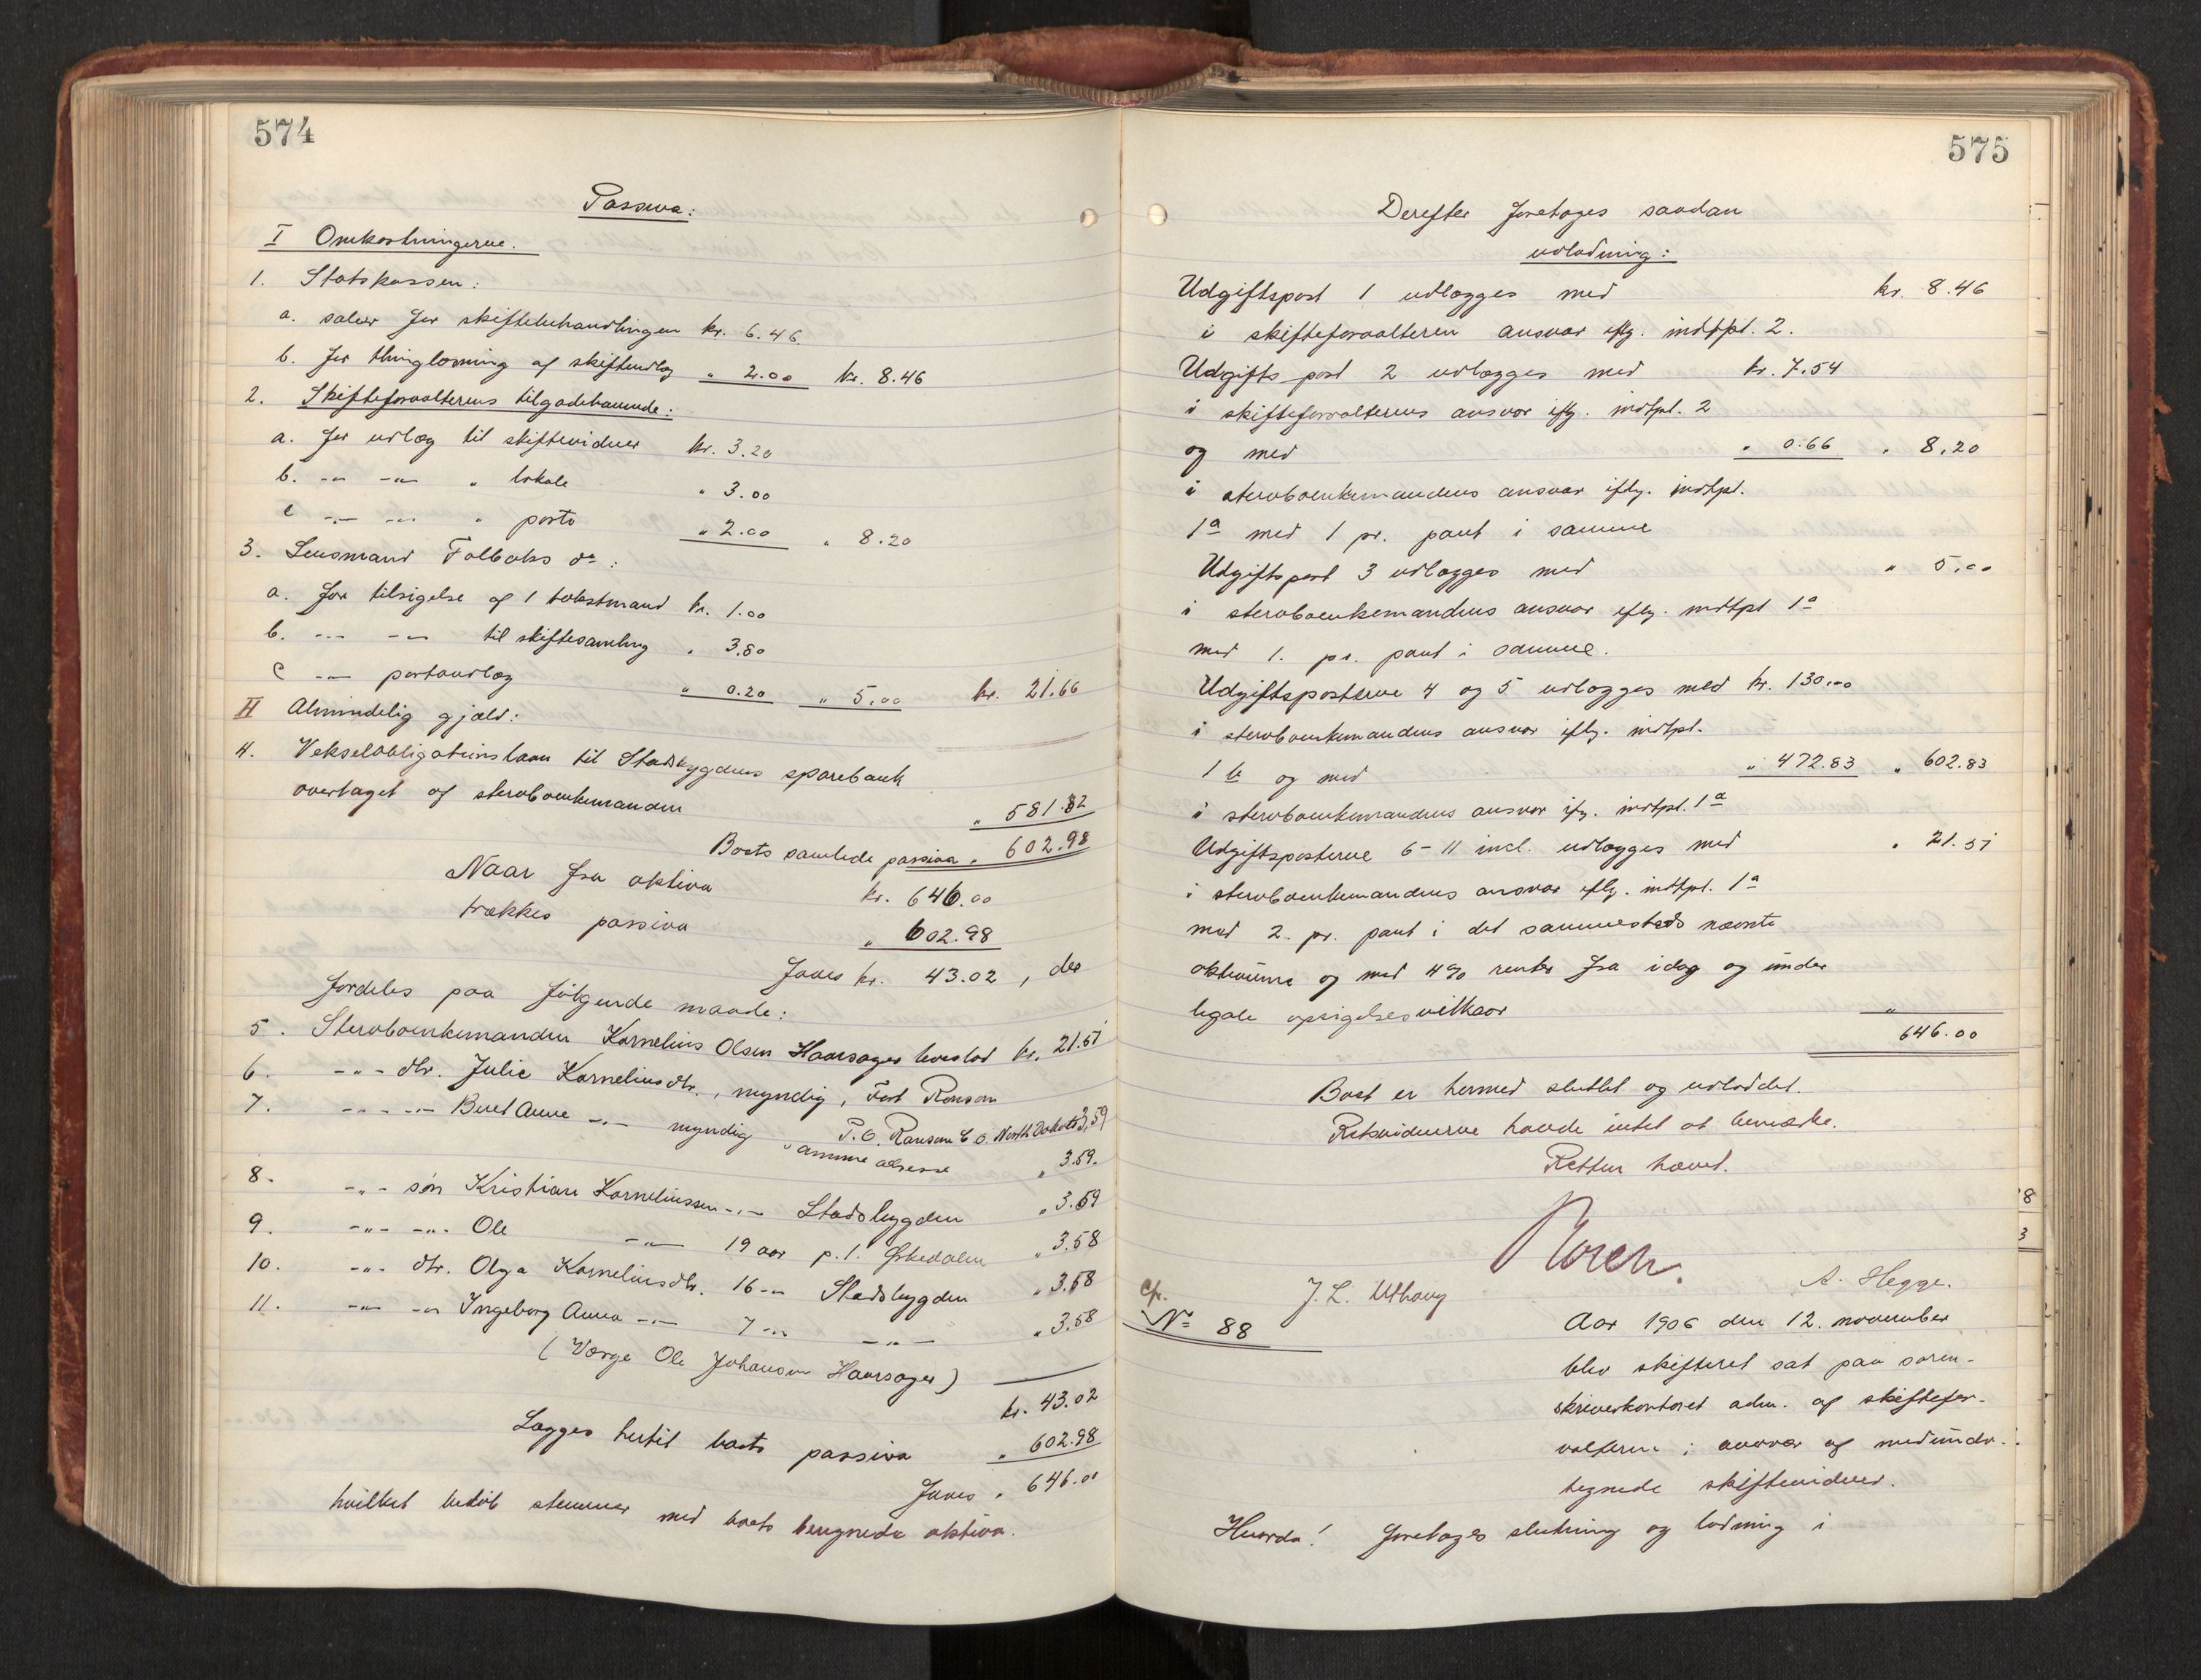 574
Passiva:
I Omkostningerne.
1. Statskassen:
a. salær for skiftebehandlingen kr. 6.46.
b. for thinglæsning af skifteudlæg " 2.00 kr. 8.46
2. Skifteforvalterens tilgodehavende:
a. for udlæg til skiftevidner kr. 3.20
b. -"- -"- " lokale " 3.00
c -"- -"- " porto " 2.00 " 8.20
3. Lensmand Folbaks do:
a. for tilsigelse af 1 takstmand kr. 1.00
b. -"- -"- til skiftesamling " 3.80
c -"- portoudlæg " 0.20 " 5.00 kr. 21.66
II Almindelig gjæld:
4. Vekselobligationslaan til Stadsbygdens sparebank
overtaget af stervboenkemanden " 581.32
Boets samlede passiva " 602.98
Naar fra aktiva kr. 646.00
trækkes passiva " 602.98
Haves kr. 43.02, der
fordeles paa følgende maade:
5. Stervboenkemanden Kornelius Olsen Haarsager boeslod kr. 21.51
6. -"- dtr. Julie Korneliusdtr., myndig, Fort Ransom
P.O. Ransom C.O. North Dakota 3.59
7. -"- -"- Beret Anne -"- myndig samme adresse " 3.59.
8. -"- søn Kristian Korneliussen -"- Stadsbygden " 3.59
9. -"- -"- Ole -"- 19 aar p.t. Ørkedalen " 3.58
10. -"- dtr. Olga Korneliusdtr. 16 -"- Stadsbygden " 3.58
11. -"- -"- Ingeborg Anna -"- 7 -"- -"- " 3.58
(Værge Ole Johansen Haarsager)
kr. 43.02
Lægges hertil boets passiva " 602.98
Haves " 646.00
hvilket beløb stemmer med boets beregnede aktiva.
575
Derefter foretages saadan
udlodning:
Udgiftspost 1 udlægges med kr. 8.46
i skifteforvalteren ansvar iflg. indtpt. 2.
Udgiftspost 2 udlægges med kr. 7.54
i skifteforvalterens ansvar iflg. indtpt. 2
og med " 0.66 " 8.20
i stervboenkemandens ansvar iflg. indtpt.
1a med 1 pr. pant i samme
Udgiftspost 3 udlægges med " 5.00
i stervboenkemandens ansvar iflg. indtpt 1a
med 1. pr. pant i samme.
Udgiftsposterne 4 og 5 udlægges med kr. 130.00
i stervboenkemandens ansvar iflg. indtpt.
1b og med " 472.83 " 602.83
i stervboenkemandens ansvar iflg. indtpt. 1a
Udgiftsposterne 6-11 incl. udlægges med " 21.51
i stervboenkemandens ansvar iflg. indtpt. 1a
med 2. pr. pant i det sammesteds nævnte
aktivum og med 4% renter fra idag og under
legale opsigelsesvilkaar "
646.00
Boet er hermed sluttet og udloddet.
Retsvidnerne havde intet at bemærke.
Retten hævet.
Noren.
J. L. Uthaug A. Hegge.
Cfr.
No 88
Aar 1906 den 12. november
blev skifteret sat paa soren-
skriverkontoret adm. af skiftefor-
valteren i overvær af medunder-
tegnede skiftevidner.
Hvorda! foretages slutning og lodning i
8
3